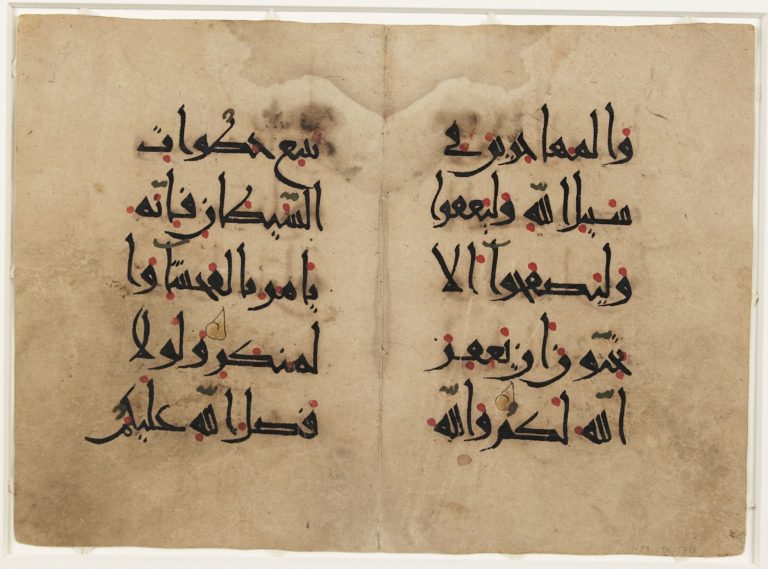 والمهاجرين في
سبيل الله وليعفوا
وليصفحوا الا
تحبون ان يغفر
الله لكم والله
يتبع خطوات
الشيطان فانه
يامر بالفحشا وا
لمنكر ولولا
فضل الله عليكم